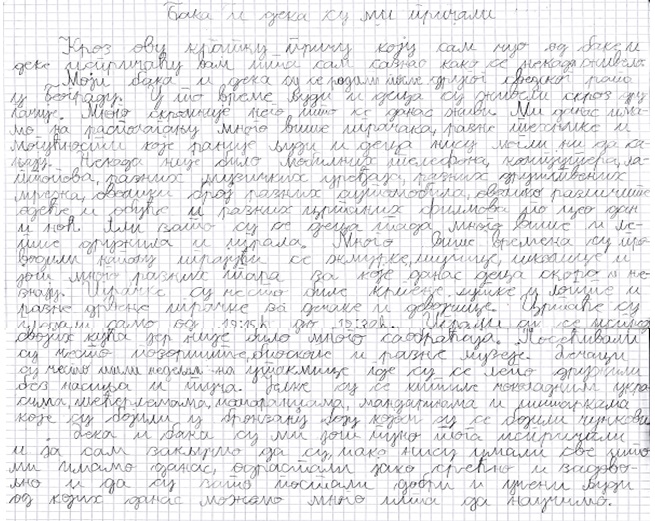 Бака и дека су ми причали
Кроз ову кратку причу коју сам чуо од баке и
деке испричаћу вам шта сам сазнао како се некада живело.
Моји бака и дека су се родили после другог светског рата
у Београду. У то време људи и деца су живели скроз дру
гачије. Много скромније него што се данас живи. Ми данас има-
мо на располагању много више играчака, разне технике и
могућности које раније људи и деца нису могли ни да са-
њају. Некада није било мобилних телефона, компјутера, ла-
птопова, разних музичких уређаја, разних друштвених
мрежа, оволики број разних аутомобила, овако различите
одеће и обуће и разних цртаних филмова по цео дан
и ноћ. Али зато су се деца тада много више и ле-
пше дружила и играла. Много више времена су про-
водили напољу играјући се жмурке, шуге, школице и
још много разних игара за које данас деца скоро и не
знају. Играчке су често биле крпене лутке и лопте и
разне дрвене играчке за дечаке и девојчице. Цртаће су
гледали само од 19:15h до 19:30h. Играли су се испред
својих кућа јер није било много саобраћаја. Посећивали
су често позориште, биоскопе и разне музеје. Дечаци
су често ишли недељом на утакмице где су се лепо дружили
без насиља и туча. Јелке су се китиле некадашњим укра-
сима, шећерлемама, поморанџама, мандаринама и шишаркама
које су бојили у бронзану боју којом су се бојили ћункови.
Дека и бака су ми још пуно тога испричали
и ја сам закључио да су, иако нису имали све што
ми имамо данас, одрастали јако срећно и задово-
љно и да су зато постали добри и учени људи
од којих данас можемо много шта да научимо.